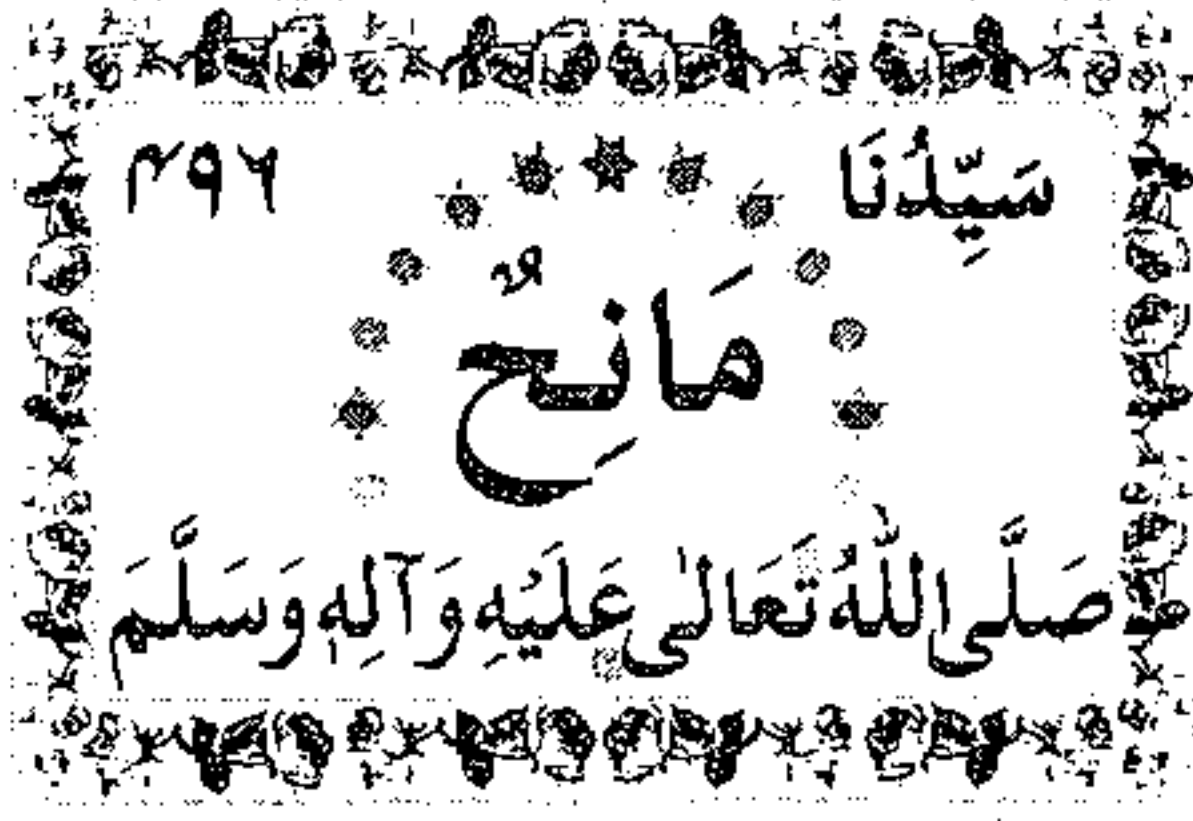 سَيِّدُنَا ۴۹۶
مَانِحٌ
صَلَّى اللّٰهُ تَعَالٰى عَلَيْهِ وَآلِهٖ وَسَلَّمَ